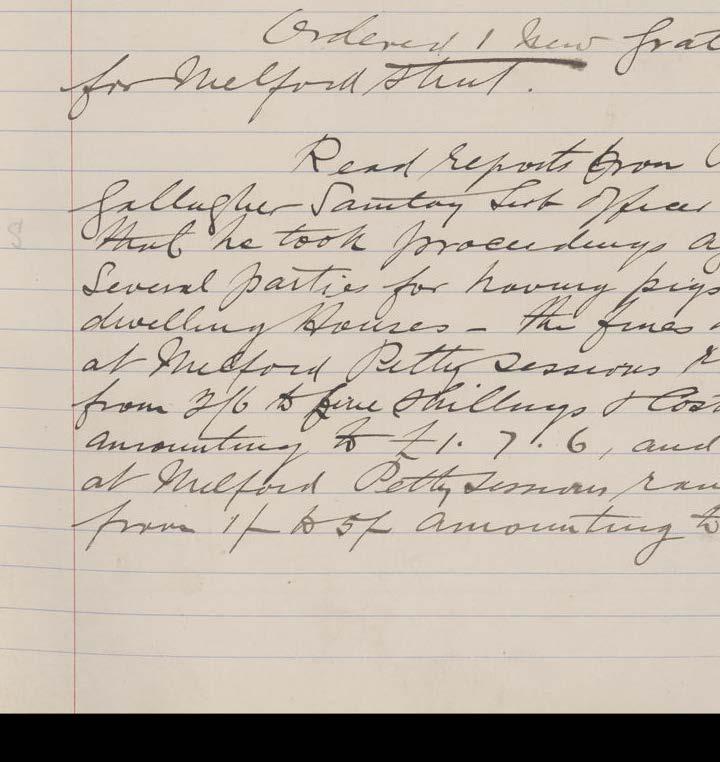 Ordered 1 New Grat
for Milford Street.
Read reports from
Gallagher Sanitary Sub Officer
that he took proceedings ag
Several parties for having pigs
dwelling Houses - the fines
at Milford Petty Sessions
from 2/6 to five Shillings & Cost
amounting to £1. 7. 6, and
at Milford Petty Sessions ran
from 1/- to 5/- amounting to